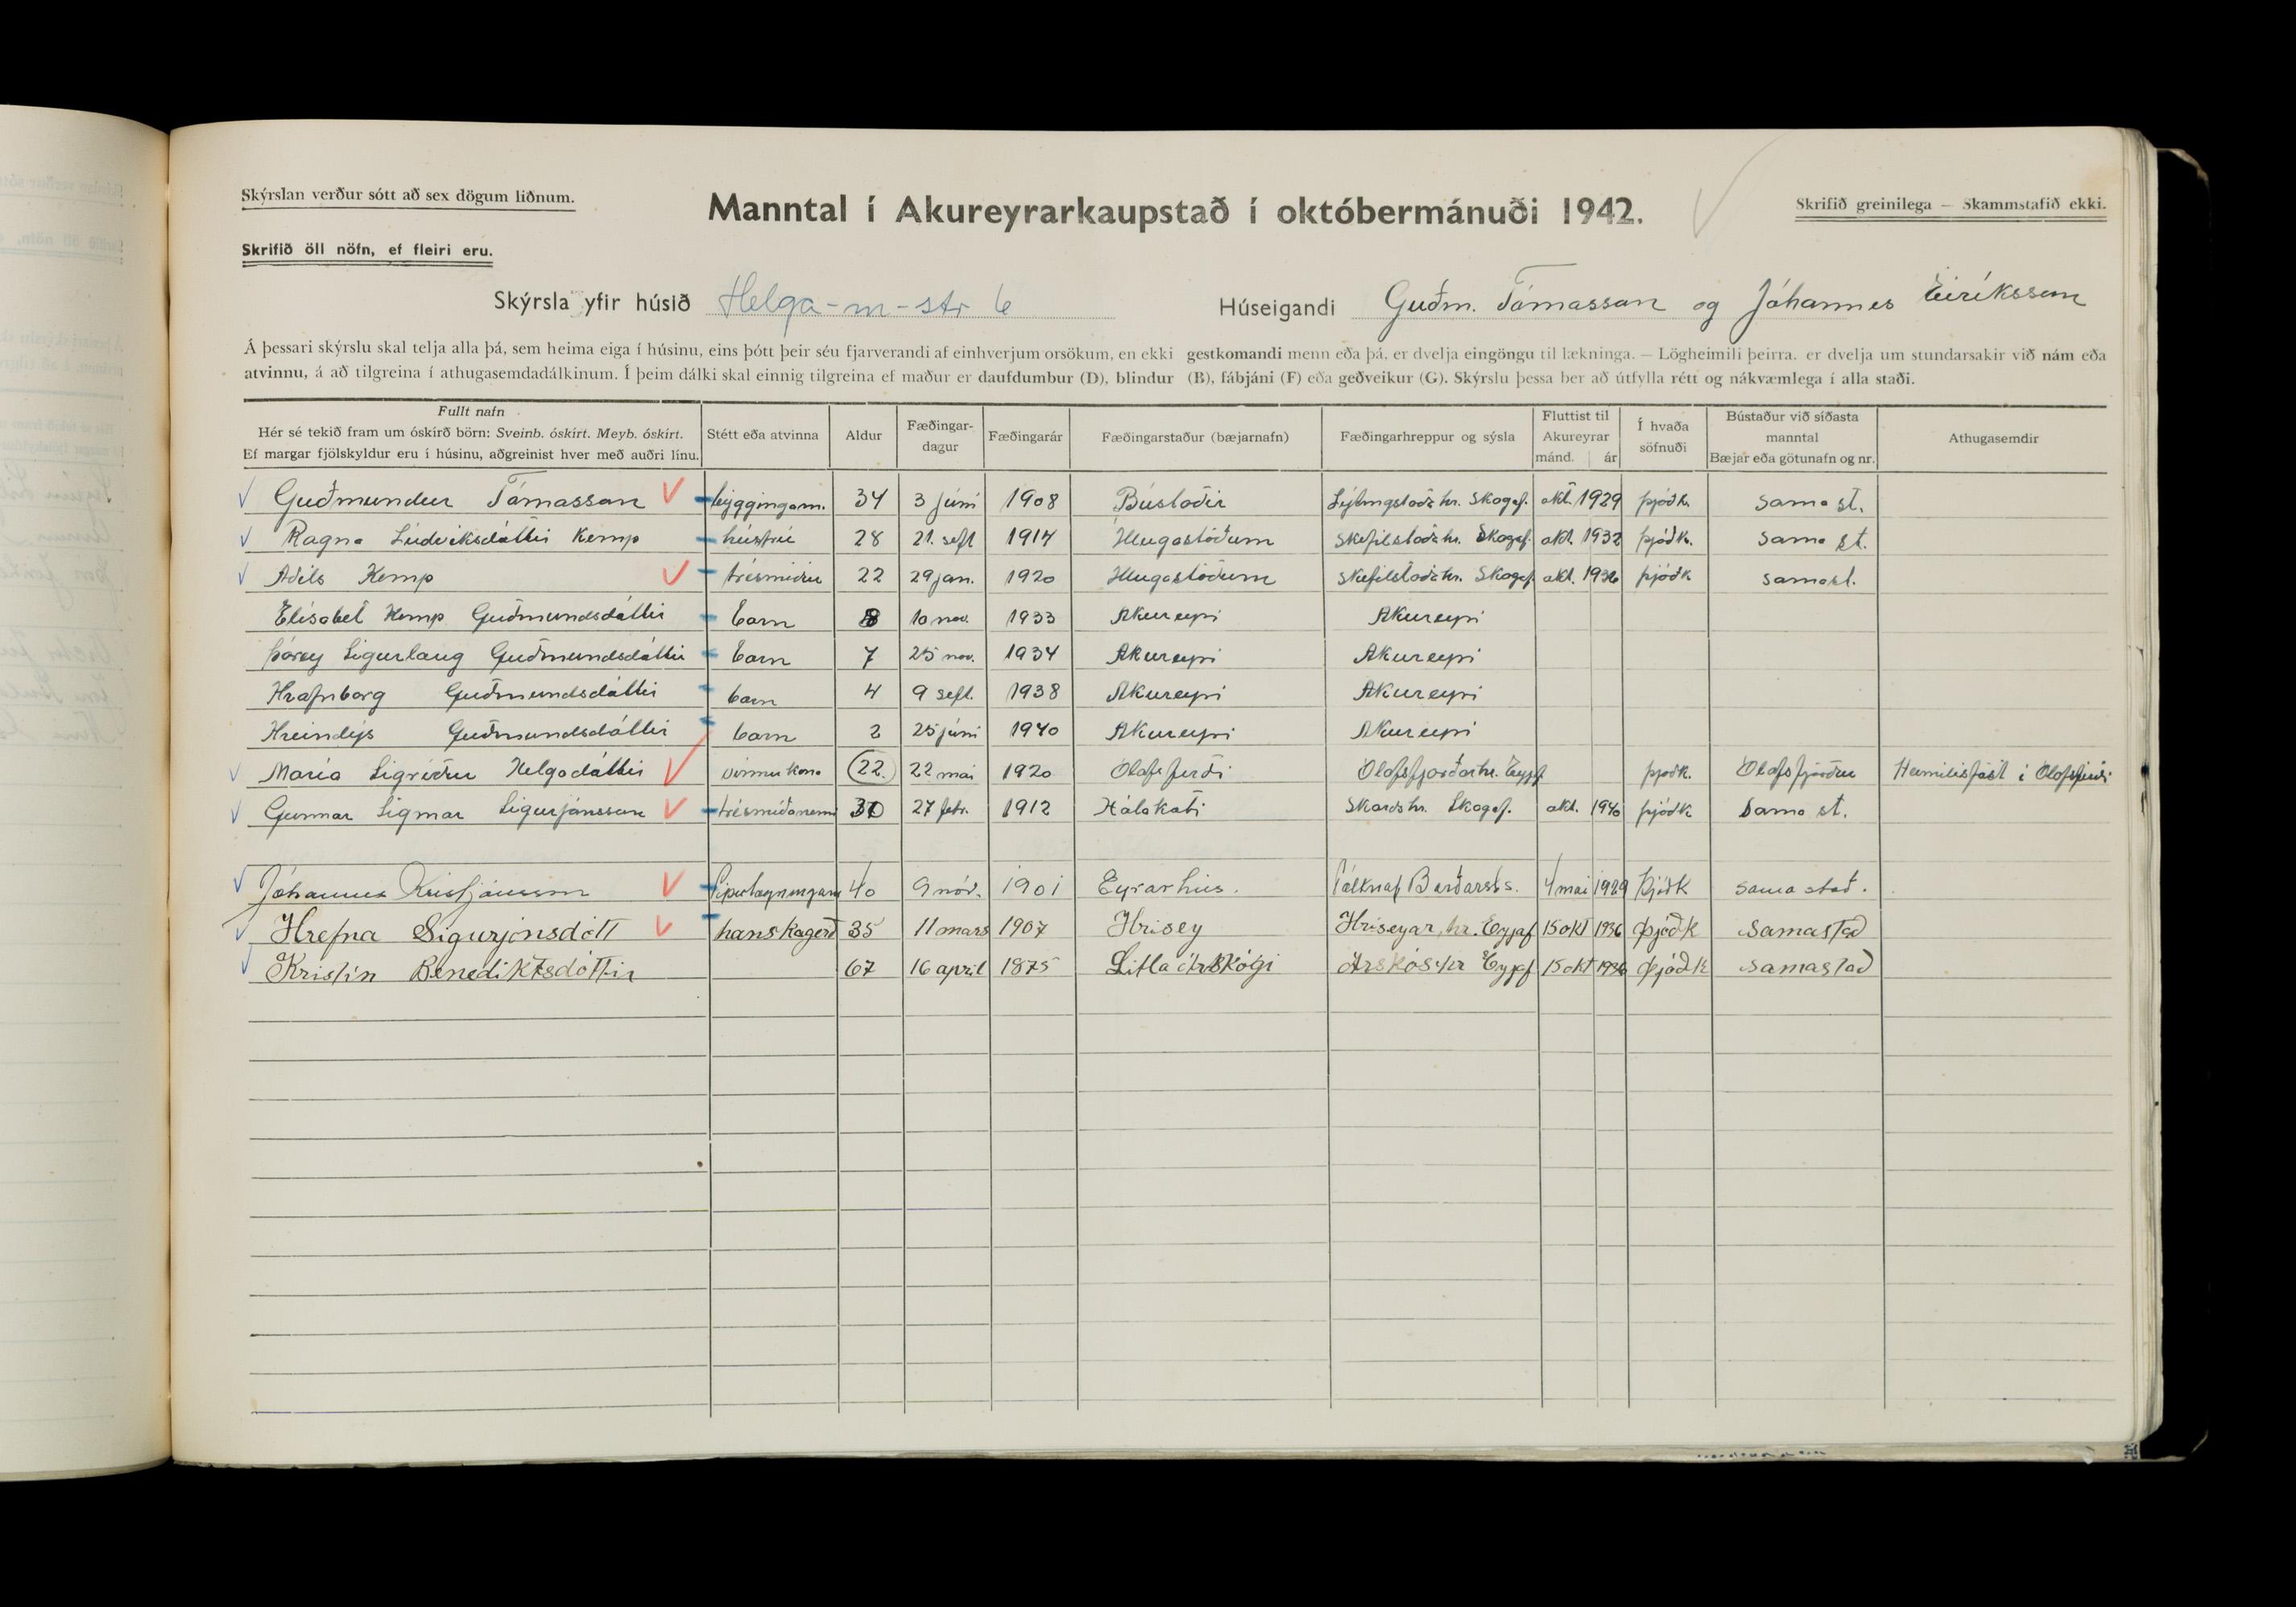 Skýrslan verður sótt að sex dögum liðnum.
Manntal í Akureyrarkaupstað í októbermánuði 1942.
Skrifið greinilega — Skammstafið ekki.
Skrifið öll nöfn, ef fleiri eru.
Skýrsla yfir húsið Helga-m-str 6 Húseigandi Guðm. Tómasson og Jóhannes Eiríksson
Á þessari skýrslu skal telja alla þá, sem heima eiga í húsinu, eins þótt þeir séu fjarverandi af einhverjum orsökum, en ekki gestkomandi menn eða þá, er dvelja eingöngu til lækninga. — Lögheimili þeirra, er dvelja um stundarsakir við nám eða
atvinnu, á að tilgreina í athugasemdadálkinum. Í þeim dálki skal einnig tilgreina ef maður er daufdumbur (D), blindur (B), fábjáni (F) eða geðveikur (G). Skýrslu þessa ber að útfylla rétt og nákvæmlega í alla staði.
Fullt nafn
Hér sé tekið fram um óskírð börn: Sveinb. óskírt. Meyb. óskírt.
Ef margar fjölskyldur eru í húsinu, aðgreinist hver með auðri línu.
Stétt eða atvinna
Aldur
Fæðingar-
dagur
Fæðingarár
Fæðingarstaður (bæjarnafn)
Fæðingarhreppur og sýsla
Fluttist til
Akureyrar
mánd. ár
Í hvaða
söfnuði
Bústaður við síðasta
manntal
Bæjar eða götunafn og nr.
Athugasemdir
Guðmundur Tómasson byggingam. 34 3 júní 1908 Bústaðir Lýtingstaðahr. Skagaf. okt. 1929 þjóðk. sama st.
Ragna Lúdviksdóttir Kemp húsfrú 28 21. sept 1914 Illugastöðum Skefilstaðahr. Skagaf. okt. 1932 þjóðk. sama st.
Aðils Kemp trésmiður 22 29 jan. 1920 Illugastöðum Skefilstaðahr. Skagaf. okt. 1936 þjóðk sama st.
Elísabet Kemp Guðmundsdóttir barn 8 10 nov. 1933 Akureyri Akureyri
Þórey Sigurlaug Guðmundsdóttir barn 7 25 nov. 1934 Akureyri Akureyri
Hrafnborg Guðmundsdóttir barn 4 9 sept. 1938 Akureyri Akureyri
Hreindís Guðmundsdóttir barn 2 25 júní 1940 Akureyri Akureyri
María Sigríður Helgadóttir vinnukona 22. 22 maí 1920 Ólafsfirði Ólafsfjarðarhr. Eyjf þjóðk. Ólafsfjörður Heimilisföst í Ólafsfirði
Gunnar Sigmar Sigurjónsson trésmíðanemi 30 27 febr. 1912 Hálskoti Skarðshr. Skagaf. okt. 1940 þjóðk sama st.
Jóhannes Kristjánsson Pípulagningam 40 9 nóv. 1901 Eyrarhús. Tálknaf Barðarsts. 4 maí 1929 Þjóðk sama stað.
Hrefna Sigurjónsdótt hanskagerð 35 11 mars 1907 Hrisey Hriseyar. hr. Eyjaf 15 okt 1936 Þjóðk samastað
Kristín Benediktsdóttir 67 16 april 1875 Litla árskógi Árskóshr Eyjaf 15 okt 1936 Þjóðk samastað